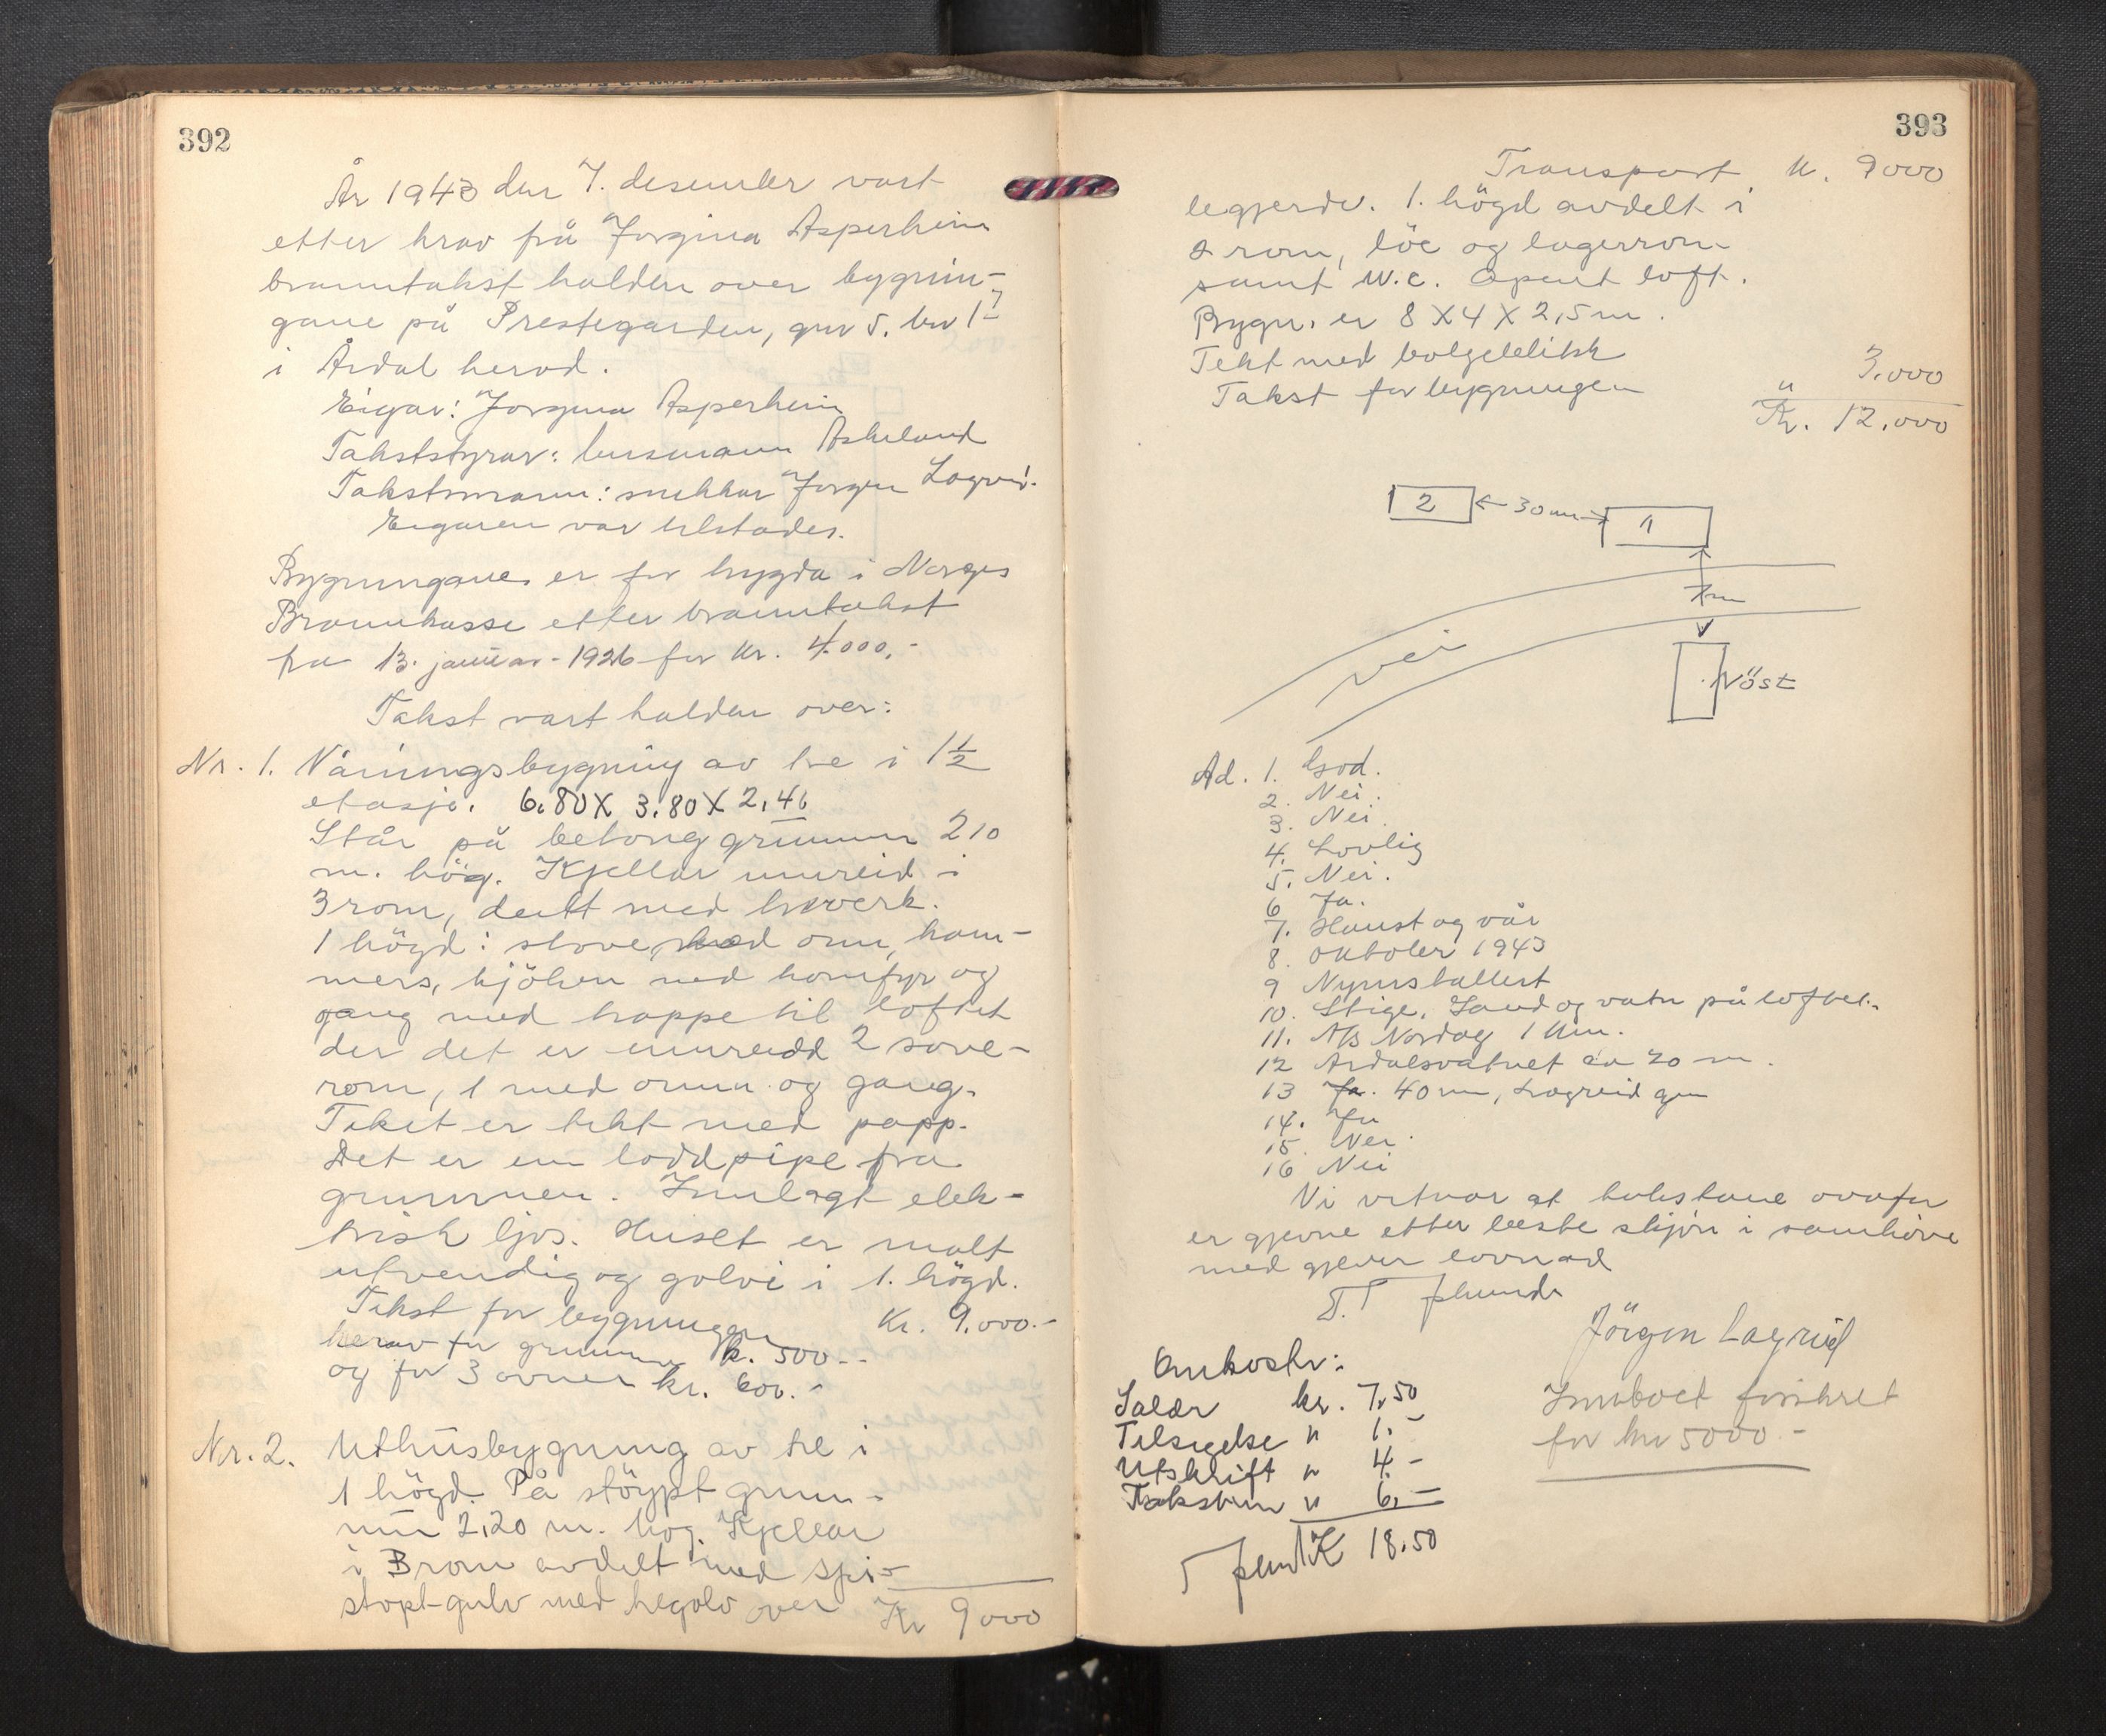 392
År 1943 den 7. desember vart
etter krav frå Jorgina Asperheim
branntakst halden over bygnin-
gane på Prestegarden, gnr 5. bnr 17
i Årdal herad.
Eigar: Jorgina Asperheim
Takststyrar: lensmann Askeland
Takstmann: snekkar Jørgen Lægreid.
Eigaren var tilstades.
Bygningane er før trygda i Norges
Brannkasse etter branntakst
fra 13. januar - 1926 for kr. 4.000.-
Takst vart halden over:
Nr. 1. Våningsbygning av tre i 1 1/2
etasje. 6.80 X 3.80 X 2.46
Står på betong grunnmur 2 10
m. høg. Kjellar innreid i
3 rom, delt med treverk.
1 högd: stove, med omn, kam-
mers, kjöken med komfyr og
gang med trappe til loftet
der det er innreidd 2 sove-
rom, 1 med omn og gang.
Taket er tekt med papp.
Det er ein loddpipe fra
grunnen. Innlagt elek-
trisk ljos. Huset er malt
utvendig og golvi i 1. högd.
Takst for bygningen Kr. 9.000.-
herav for grunnmur k. 500.-
og for 3 ovner kr. 600.-
Nr. 2. Uthusbygning av tre i
1 högd. På stöypt grunn-
mur 2,20 m. høg. Kjellar
i 3 rom avdelt med
stöpt gulv med tregolv over
Kr 9000
393
Transport kr. 9000
1. högd avdelt i
2 rom, löe og lagerrom
samt W.C. Opent loft.
Bygn. er 8 X 4 X 2,5 m.
Tekt med bølgeblikk
Takst for bygningen " 3.000
Kr. 12.000
2 ← 30 m → 1
7 m
vei
Nöst
Ad. 1. God.
2. Nei.
3. Nei.
4. Lovlig
5. Nei.
6 Ja.
7. Haust og vår
8. Oktober 1943
9 Nymurstallert
10. Stige, Sand og vatn på loftet.
11. A/S Nordag 1 km.
12 Årdalsvatnet ca 20 m.
13 Ja. 40 m, Lægreid
14. Ja
15. Nei
16 Nei
Vi vitnar at takstane ovafor
er gjevne etter beste skjön i samhöve
med gjeven lovnad
Jörgen Lægreid
Omkostn:
Salær kr. 7,50
Tilsigelse " 1.-
Utskrift " 4.-
Takstm " 6.-
K 18.50
Innboet forsikret
for kr 5000.-